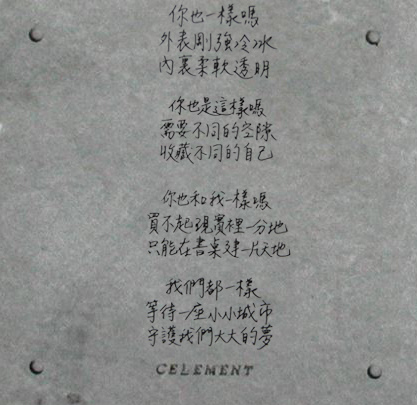 你也一樣嗎
外表剛強冷冰
內裏柔軟透明
你也是這樣嗎
需要不同的空隙
收藏不同的自己
你也和我一樣嗎
買不起現實裡一分地
只能在書桌建一片天地
我們都一樣
等待一座小小城市
守護我們大大的夢
CELEMENT